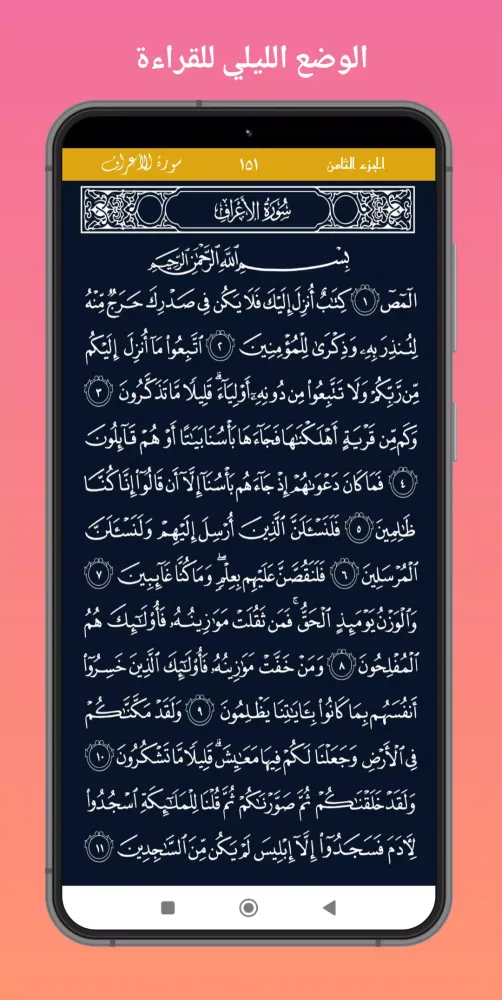 الوضع الليلي للقراءة
الجزء الثامن ١٥١ سورة الأعراف
سُورَةُ الأَعْرَافِ
بِسْمِ اللَّهِ الرَّحْمَٰنِ الرَّحِيمِ
الٓمٓصٓ ١ كِتَٰبٌ أُنزِلَ إِلَيْكَ فَلَا يَكُن فِى صَدْرِكَ حَرَجٌ مِّنْهُ
لِتُنذِرَ بِهِۦ وَذِكْرَىٰ لِلْمُؤْمِنِينَ ٢ ٱتَّبِعُوا۟ مَآ أُنزِلَ إِلَيْكُم
مِّن رَّبِّكُمْ وَلَا تَتَّبِعُوا۟ مِن دُونِهِۦٓ أَوْلِيَآءَ ۗ قَلِيلًا مَّا تَذَكَّرُونَ ٣
وَكَم مِّن قَرْيَةٍ أَهْلَكْنَٰهَا فَجَآءَهَا بَأْسُنَا بَيَٰتًا أَوْ هُمْ قَآئِلُونَ
٤ فَمَا كَانَ دَعْوَىٰهُمْ إِذْ جَآءَهُم بَأْسُنَآ إِلَّآ أَن قَالُوٓا۟ إِنَّا كُنَّا
ظَٰلِمِينَ ٥ فَلَنَسْـَٔلَنَّ ٱلَّذِينَ أُرْسِلَ إِلَيْهِمْ وَلَنَسْـَٔلَنَّ
ٱلْمُرْسَلِينَ ٦ فَلَنَقُصَّنَّ عَلَيْهِم بِعِلْمٍ ۖ وَمَا كُنَّا غَآئِبِينَ ٧
وَٱلْوَزْنُ يَوْمَئِذٍ ٱلْحَقُّ ۚ فَمَن ثَقُلَتْ مَوَٰزِينُهُۥ فَأُو۟لَٰٓئِكَ هُمُ
ٱلْمُفْلِحُونَ ٨ وَمَنْ خَفَّتْ مَوَٰزِينُهُۥ فَأُو۟لَٰٓئِكَ ٱلَّذِينَ خَسِرُوٓا۟
أَنفُسَهُم بِمَا كَانُوا۟ بِـَٔايَٰتِنَا يَظْلِمُونَ ٩ وَلَقَدْ مَكَّنَّٰكُمْ
فِى ٱلْأَرْضِ وَجَعَلْنَا لَكُمْ فِيهَا مَعَٰيِشَ ۗ قَلِيلًا مَّا تَشْكُرُونَ ١٠
وَلَقَدْ خَلَقْنَٰكُمْ ثُمَّ صَوَّرْنَٰكُمْ ثُمَّ قُلْنَا لِلْمَلَٰٓئِكَةِ ٱسْجُدُوا۟
لِءَادَمَ فَسَجَدُوٓا۟ إِلَّآ إِبْلِيسَ لَمْ يَكُن مِّنَ ٱلسَّٰجِدِينَ ١١